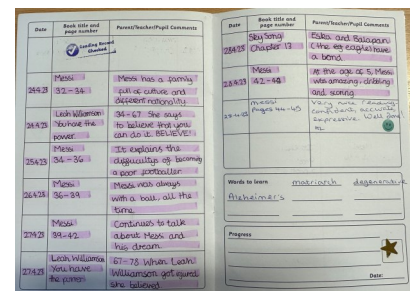 Date
Book title and
page number
Parent/Teacher/Pupil Comments
Reading Record
Checked
24.4.23
Messi
32-34
Messi has a family
full of culture and
different nationality
24.4.23
Leah Williamson
You have the
power
34-67 She says
to believe that you
can do it. BELIEVE!
25.4.23
Messi
34-36
It explains the
difficultys of becoming
a poor footballer
26.4.23
Messi
36-39
Messi was always
with a ball, all the
time
27.4.23
Messi
39-42
Continues to talk
about Messi and
his dream
27.4.23
Leah Williamson
You have
the power
67-78 When Leah
Williamson got injured
she believed
Date
Book title and
page number
Parent/Teacher/Pupil Comments
28.4.23
Sky Song
Chapter 13
Eska and Balapan
(the eagle) have
a bond
28.4.23
Messi
42-44
At the age of 5, Messi
was amazing, dribbling
and scoring
Messi
Pages 44-45
Very nice reading
confident, accurate
expressive. Well done
Words to learn
matriarch
degenerative
Alzheimer's
Progress
Date: